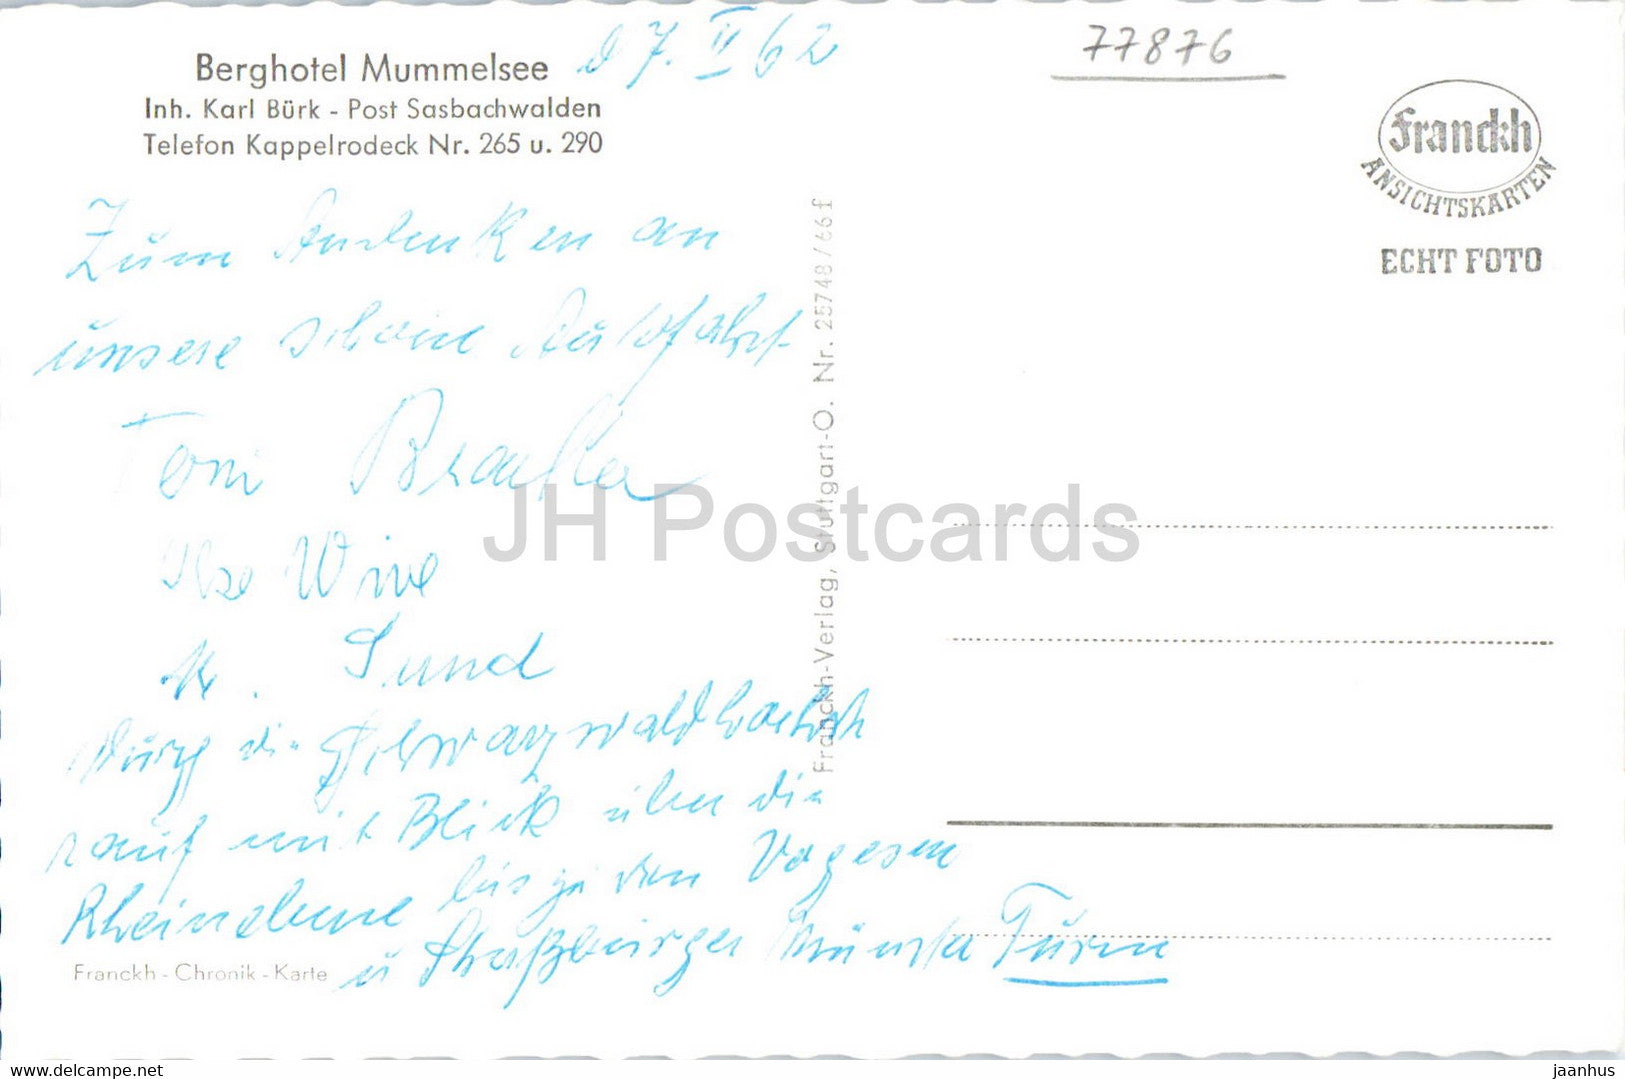 Berghotel Mummelsee d 7. II 62
Inh. Karl Bürk - Post Sasbachwalden
Telefon Kappelrodeck Nr. 265 u. 290
77876
Franckh
ANSICHTSKARTEN
ECHT FOTO
Zum Andenken an
unsere schöne Autofahrt
Toni
Ilse
Sund
Schwarzwaldhochstr
rauf mit Blick über die
Rheinebene bis zu den Vogesen
u Straßburger Münster Turm
Franckh - Chronik - Karte
Franckh-Verlag, Stuttgart-O. Nr. 25748/66f
JH Postcards
hip.me
jaanhus